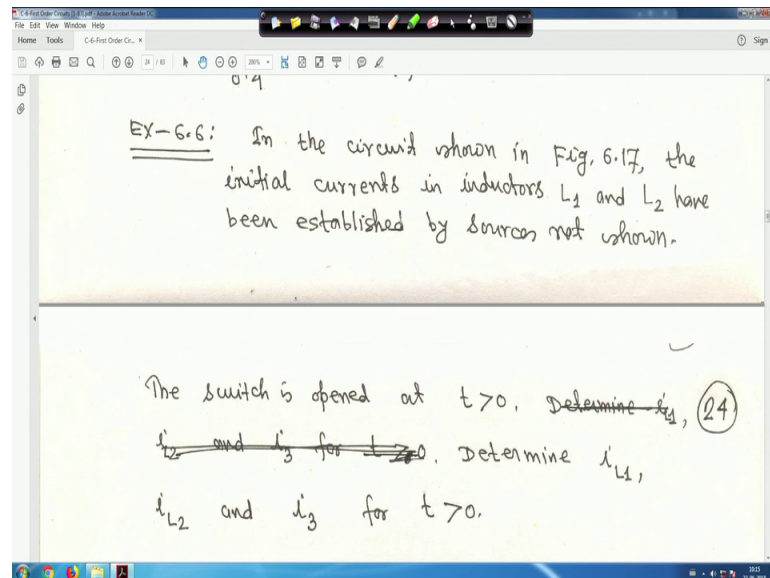 C-6-First Order Circuits [1-83].pdf - Adobe Acrobat Reader DC
File Edit View Window Help
Home Tools C-6-First Order Cir... × Sign
24 / 83 200%
0.4
EX-6.6: In the circuit shown in Fig. 6.17, the
initial currents in inductors L1 and L2 have
been established by sources not shown.
The switch is opened at t>0. Determine iL1, 24
iL2 and i3 for t>0. Determine iL1,
iL2 and i3 for t>0.
10:15